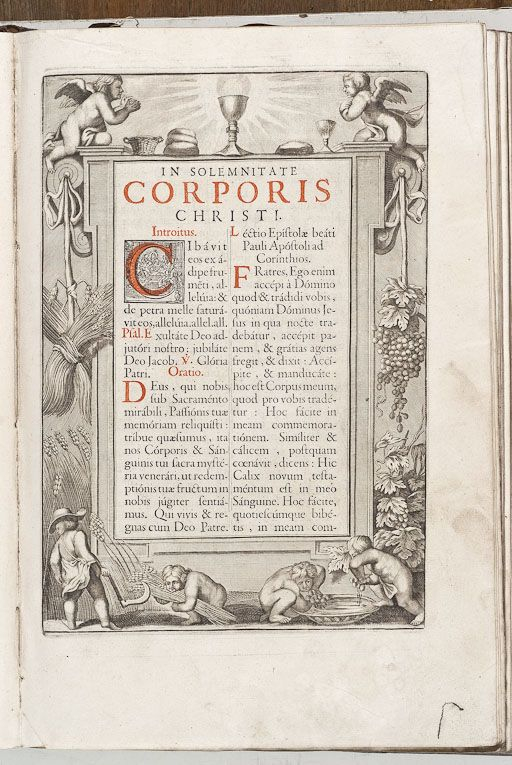 IN SOLEMNITATE
CORPORIS
CHRISTI.
Introitus.
CIbávit
eos ex á-
dipe fru-
mēti, al-
lelúia: &
de petra melle saturá-
vit eos, allelúia. allel. all.
Psal. Exultáte Deo ad-
jutóri nostro: jubiláte
Deo Jacob. ℣. Glória
Patri. Oratio.
DEus, qui nobis
sub Sacraménto
mirábili, Passiónis tuæ
memóriam reliquísti:
tríbue quæsumus, ita
nos Córporis & Sán-
guinis tui sacra mysté-
ria venerári, ut redem-
ptiónis tuæ fructum in
nobis júgiter sentiá-
mus. Qui vivis & re-
gnas cum Deo Patre.
Léctio Epistolæ beáti
Pauli Apóstoli ad
Corinthios.
FRatres. Ego enim
accépi à Dómino
quod & trádidi vobis,
quóniam Dóminus Je-
sus in qua nocte tra-
debátur, accépit pa-
nem, & grátias agens
fregit, & dixit: Accí-
pite, & manducáte:
hoc est Corpus meum,
quod pro vobis tradé-
tur: Hoc fácite in
meam commemora-
tiónem. Simíliter &
cálicem, postquam
cœnávit, dicens: Hic
Calix novum testa-
méntum est in meo
Sánguine. Hoc fácite,
quotiescúmque bibé-
tis, in meam com-